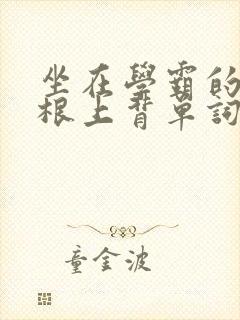 坐在學霸的
根上背單詞
童金波